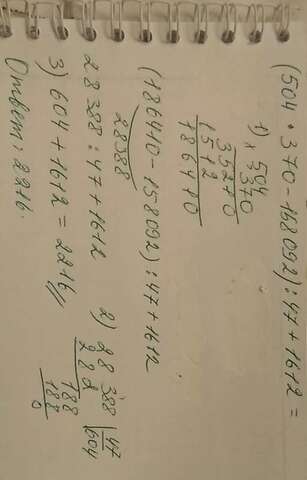 (504 · 370 - 158092) : 47 + 1612 =
1) × 504
370
35280
1512
186480
(186480 - 158092) : 47 + 1612
28388
28388 : 47 + 1612
2) 28388 | 47
282 | 604
188
188
0
3) 604 + 1612 = 2216//
Ответ: 2216.